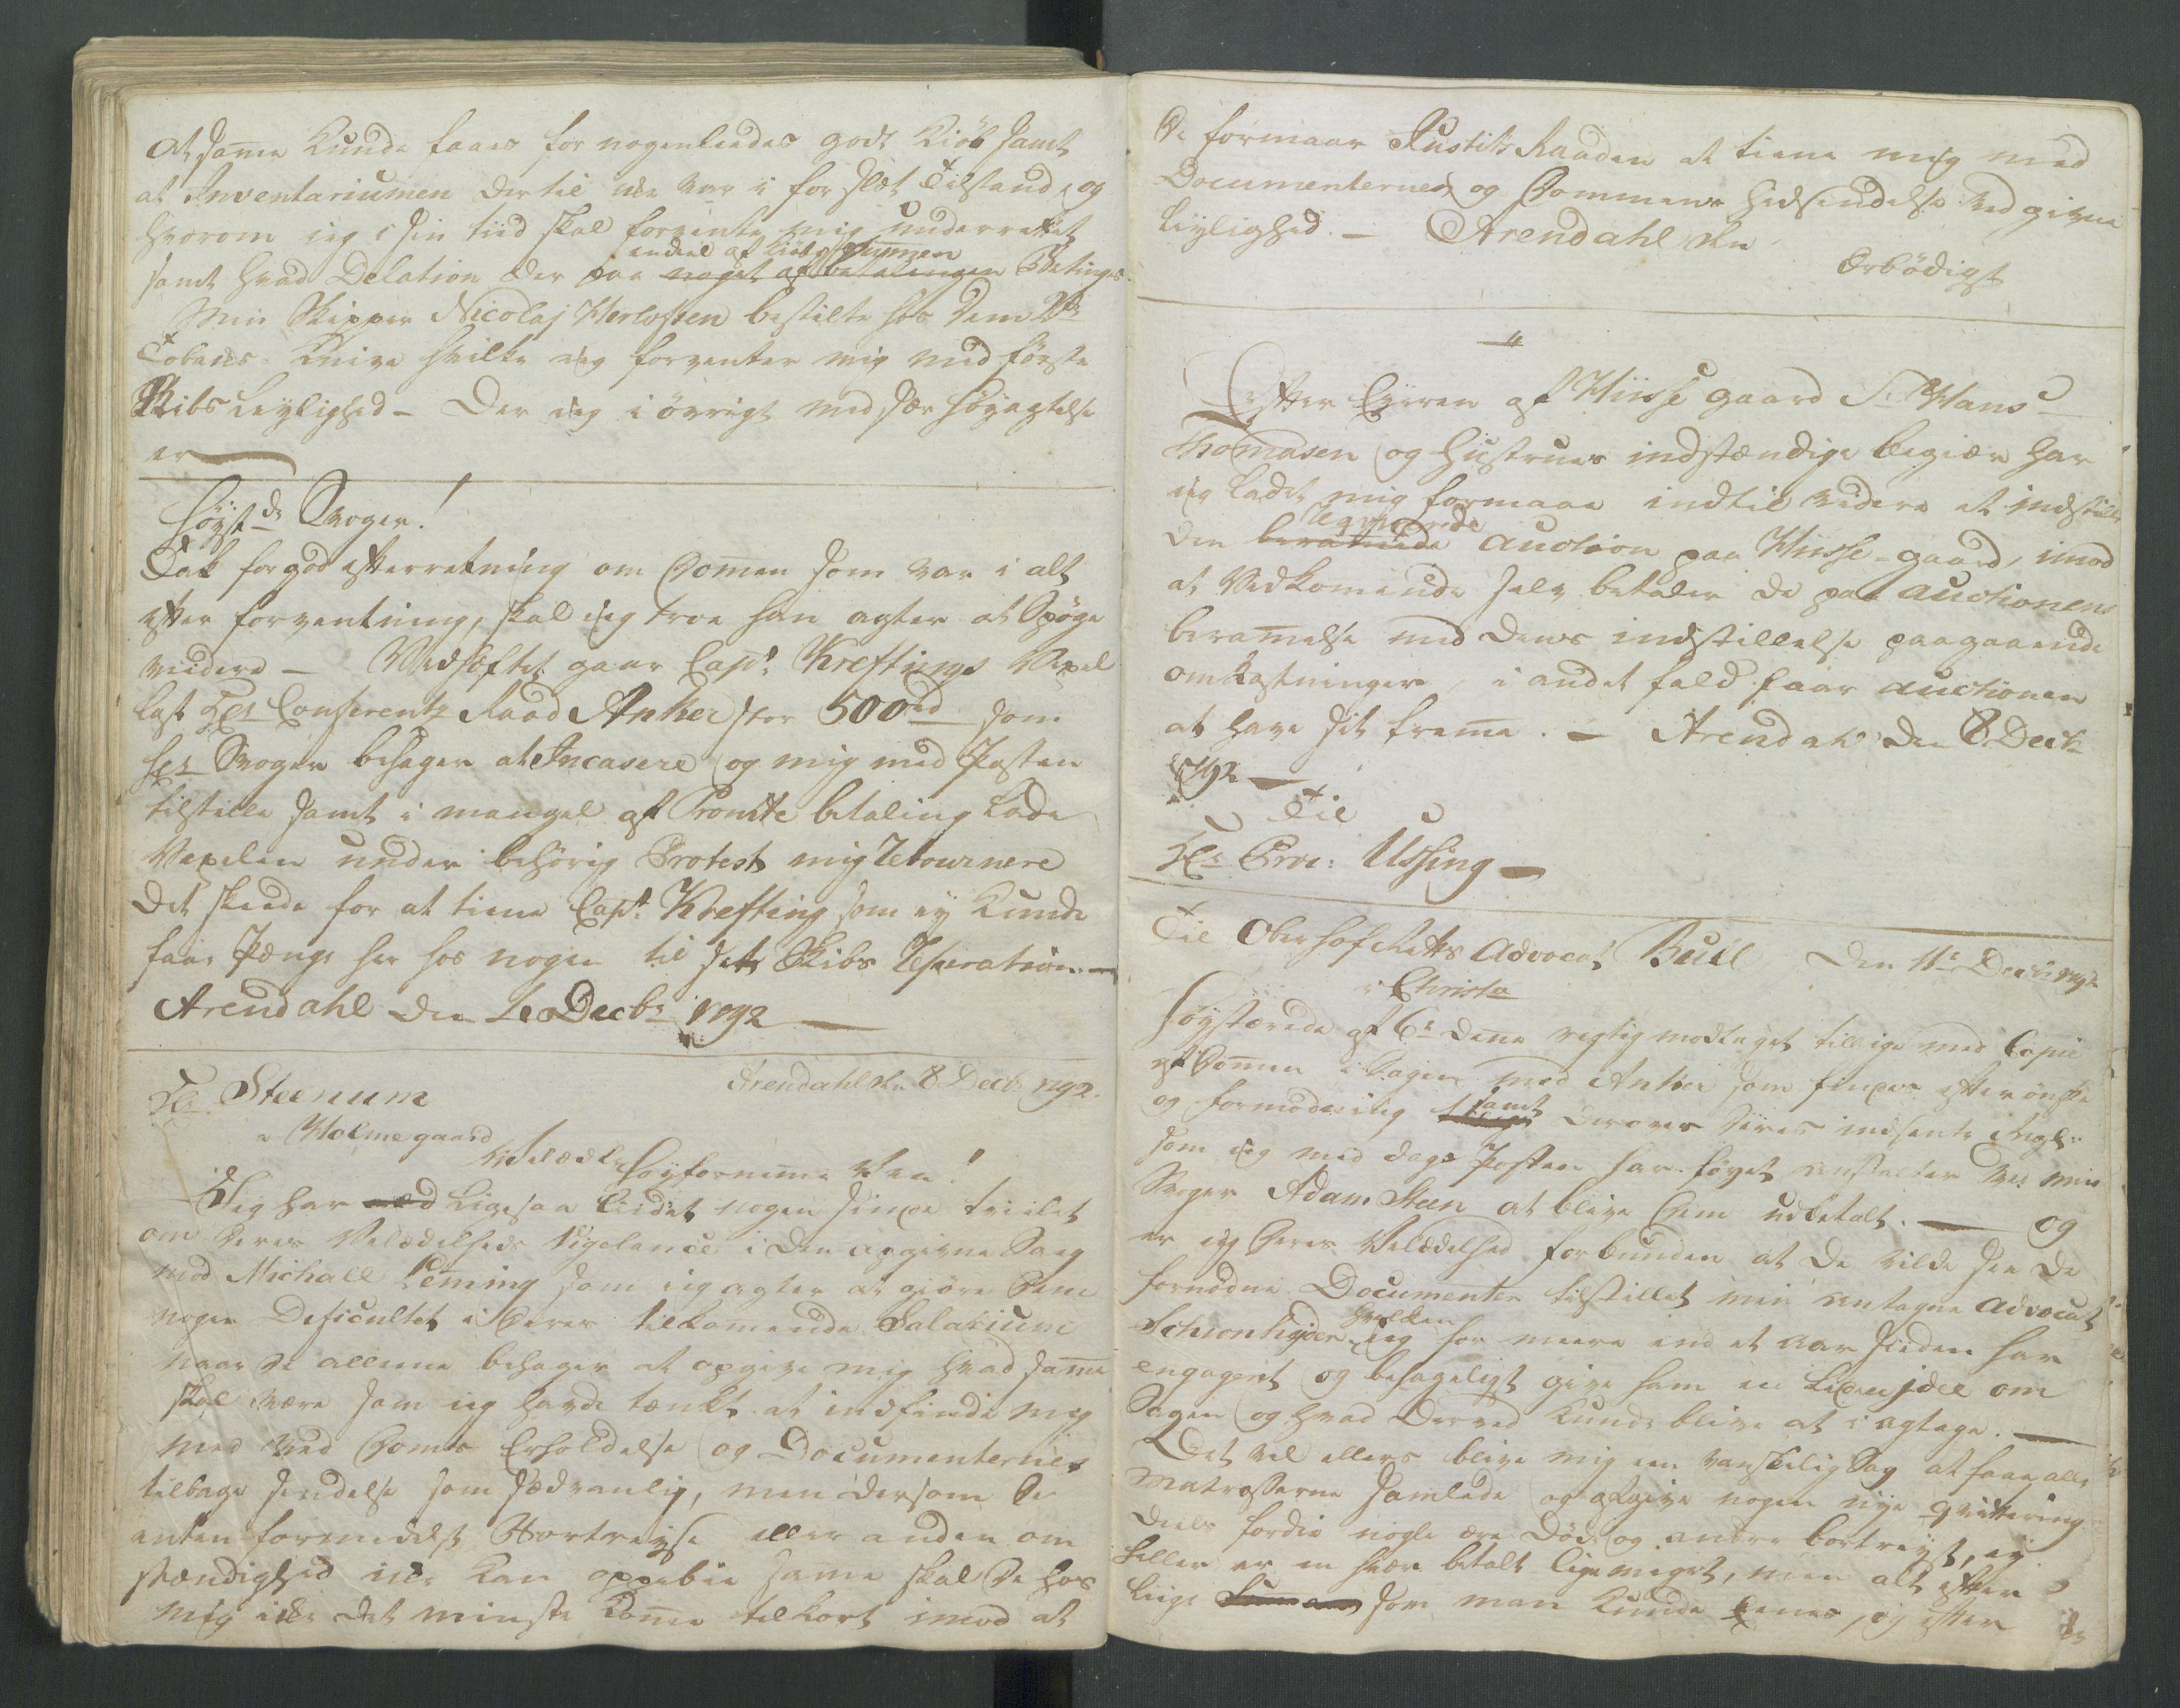 at samme kunde faaes for nogenleedes godt Kiöb samt
at Inventariumen dertil ikke var i for slet Tilstand, og
hvorom ieg i sin tiid skal forvente mig underrettet
endeel af Kiöbe Summen
samt hvad Delation der paa noget af betalingen Betinges
Min Skipper Nicolaj Herlofsen bestilte hos dem
Tobaks Knive hvilke ieg forventer mig med förste
Skibs Leylighed - Der ieg i övrigt med sær höyagtelse
er
Höystærede Svoger!
Tak for god efterretning om Dommen som var i alt
efter forventning, skal ieg troe han agter at Spöge
videre - Vedheftet gaar Capt Kreftings Vexel
paa Hr Conferentz Raad Anker stor 500 rd som
Hr Svoger behager at Incasere og mig med Posten
tilstille samt i mangel af Promte betaling lade
Vexelen under behörig Protest mig retournere
det skeede for at tiene Capt Krefting som ey kunde
faae Penge her hos nogen til sit Skibs Reperation.
Arendahl den Decbr 1792
Arendahl den 8 Decbr 1792.
Hr Steenum
a Holmegaard
Velædle Höyfornemme Ven!
Jeg har ligesaa lidet nogen sinde tvivlet
om Deres Velædelheds Vigelance i den opgivne Sag
mod Michael Lemming som ieg agter at giöre Dem
nogen Deficultet i Deres tilkommende Salarium
naar De allene behager at opgive mig hvad samme
skal være som ieg havde tænkt at indfinde mig
med ved Doms Erholdelse og Documenternes
tilbage sendelse som sædvanlig, men dersom De
enten formedelst Bortreyse eller anden om
stændighed ikke kan oppebie samme skal De hos
mig ikke det minste komme tilkort imod at
De formaar Justits Raaden at tiene mig med
Documenternes og Dommens hidsendelse ved given
Leylighed. - Arendahl den
Ærbödigst
Efter Eyeren af Hiisse gaard Sr Hans
Thomasen og Hustrues indstændige begiær har
ieg ladet mig formaae indtil videre at indstille
den berammede auction paa Hiisse-gaard, imod
at Vedkommende selv betaler de paa auctionens
berammelse med dens indstillelse paagaaende
omkastninger, i andet fald faar auctionen
at have sit fremme. - Arendahl den 8 Decbr
1792
Til
Hr Proc: Ussing
Til Oberhof Retts Advocat Bull Den 11te Decbr 1792
i Christa
Höystærede af 6te denne rigtig modtaget tillige med Copie
af Dommen i Sagen mod Anker som faldt efter önske
og formodning samt derover Deres indsendte Regl.
som ieg med dags Posten har föyet anstalter ved min
Svoger Adam Steen at blive Dem udbetalt. - og
er ieg Deres Velædelhed forbunden at De vilde see de
fornödne Documenter tilstillet min antagne Advocat
hvilken
Schionheyder ieg for meere end et aar siiden har
engageret og behageligt give ham en liden jdee om
Sagen og hvad derved kunde blive at iagtage.
Det vil ellers blive mig een vanskelig Sag at faae alle
Matroserne samlede og afgive nogen nye qvittering
deels fordi nogle ere död og andre bortreyst, ey
heller er en hver betalt lige meget, men alt efter
som man kunde Eenes, og efter